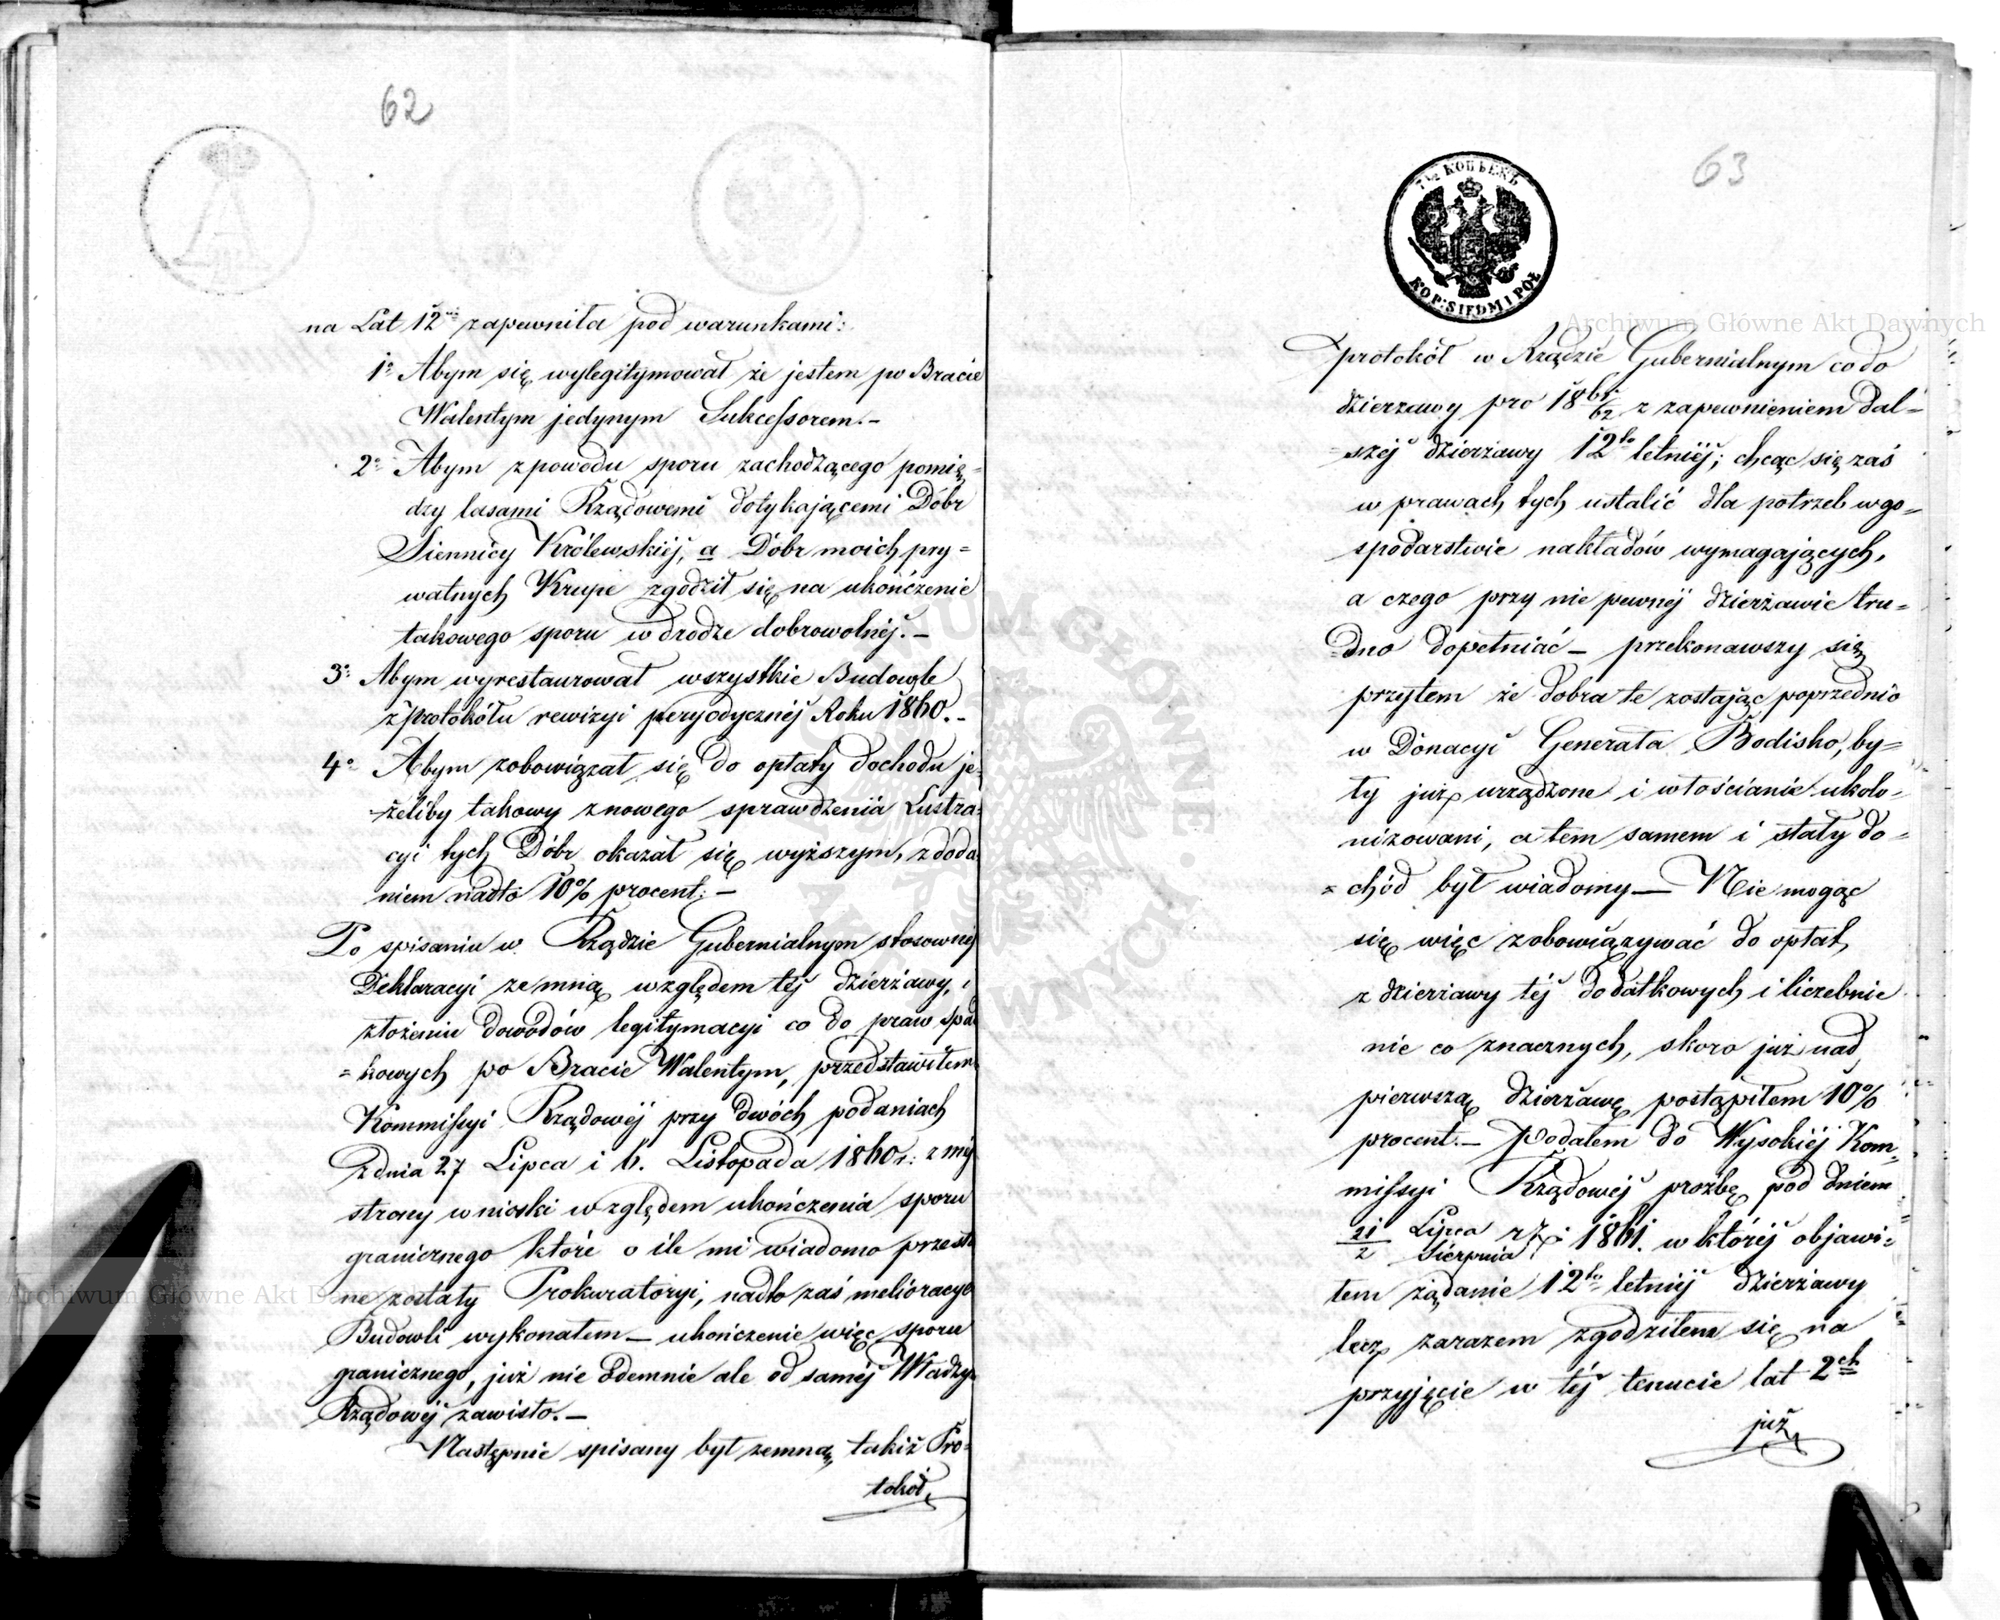 62
na Lat 12ᶜⁱᵉ zapewniła pod warunkami:
1º Abym się wylegitymował że jestem po Bracie
Walentym jedynym Sukcessorem.–
2º Abym z powodu sporu zachodzącego pomię=
dzy lasami Rządowemi dotykającemi Dóbr
Siennicy Królewskiéj, a Dóbr moich pry=
watnych Krupe zgodził się na ukończenie
takowego sporu w drodze dobrowolnéj.–
3º Abym wyrestaurował wszystkie Budowle
z protokółu rewizyi peryodycznéj Roku 1860.–
4º Abym zobowiązał się do opłaty dochodu je=
żeliby takowy z nowego sprawdzenia Lustra=
cyi tych Dóbr okazał się wyższym, z doda=
niem nadto 10% procent:–
Po spisaniu w Rządzie Gubernialnym stosownéj
Deklaracyi zemną względem téj dzierżawy, i
złożeniu dowodów legitymacyi co do praw spad
=kowych po Bracie Walentym, przedstawiłem
Kommissyi Rządowéj przy dwóch podaniach
z dnia 27 Lipca i 6. Listopada 1860 r: z méj
strony wnioski względem ukończenia sporu
granicznego które o ile mi wiadomo przesła
ne zostały Prokuratoryi, nadto zaś melioracye
Budowli wykonałem – ukończenie więc sporu
granicznego, już nie odemnie ale od saméj Władzy
Rządowéj zawisło.–
Następnie spisany był zemną, takiż Pro=
tokół,
63
7½ КОПѢЕКЪ
KOP: SIEDM I PÓŁ
protokół w Rządzie Gubernialnym co do
dzierzawy pro 18 61/62 z zapewnieniem dal=
széj dzierżawy 12to letniéj; chcąc się zaś
w prawach tych ustalić dla potrzeb w go=
spodarstwie nakładów wymagających,
a czego przy nie pewnéj dzierżawie tru=
=dno dopełniać – przekonawszy się
przytem że dobra te zostając poprzednio
w Donacyi Generała Bodisko, by=
ły już urządzone i włościanie ukolo=
nizowani, a tem samem i stały do=
=chód był wiadomy – Nie mogąc
się więc zobowiązywać do opłat,
z dzierżawy téj dodatkowych i liczebnie
nie co znacznych, skoro już nad
pierwszą dzierżawę postąpiłem 10%
procent.– Podałem do Wysokiéj Kom=
missyi Rządowéj prozbę pod dniem
21/2 Lipca/Sierpnia r. 1861. w któréj objawi=
łem żądanie 12to letniéj dzierżawy
lecz zarazem zgodziłem się na
przyjęcie w téj tenucie lat 2ch
już
Archiwum Główne Akt Dawnych
Archiwum Główne Akt Dawnych